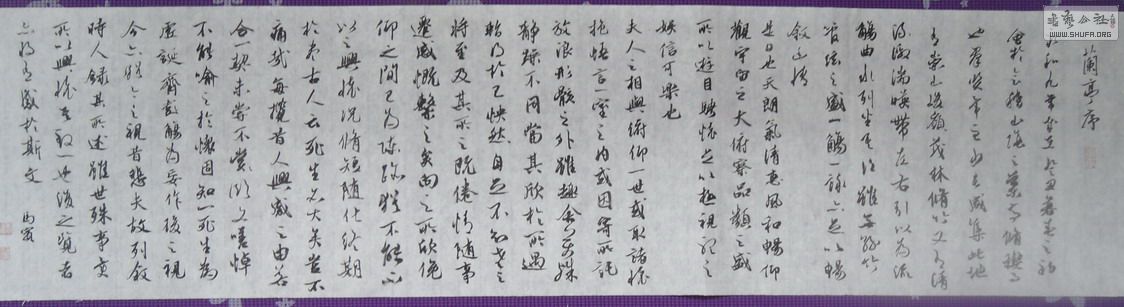 蘭亭序
永和九年歲在癸丑暮春之初
會於會稽山陰之蘭亭脩禊事
也群賢畢至少長咸集此地
有崇山峻嶺茂林脩竹又有清
流激湍映帶左右引以為流
觴曲水列坐其次雖無絲竹
管弦之盛一觴一詠亦足以暢
敘幽情
是日也天朗氣清惠風和暢仰
觀宇宙之大俯察品類之盛
所以遊目騁懷足以極視聽之
娛信可樂也
夫人之相與俯仰一世或取諸懷
抱悟言一室之內或因寄所託
放浪形骸之外雖趣舍萬殊
靜躁不同當其欣於所遇
暫得於己怏然自足不知老之
將至及其所之既倦情隨事
遷感慨繫之矣向之所欣俛
仰之間已為陳跡猶不能不
以之興懷況脩短隨化終期
於盡古人云死生亦大矣豈不
痛哉每攬昔人興感之由若
合一契未嘗不臨文嗟悼
不能喻之於懷固知一死生為
虛誕齊彭殤為妄作後之視
今亦猶今之視昔悲夫故列敘
時人錄其所述雖世殊事異
所以興懷其致一也後之覽者
亦將有感於斯文
書藝公社
WWW.SHUFA.ORG